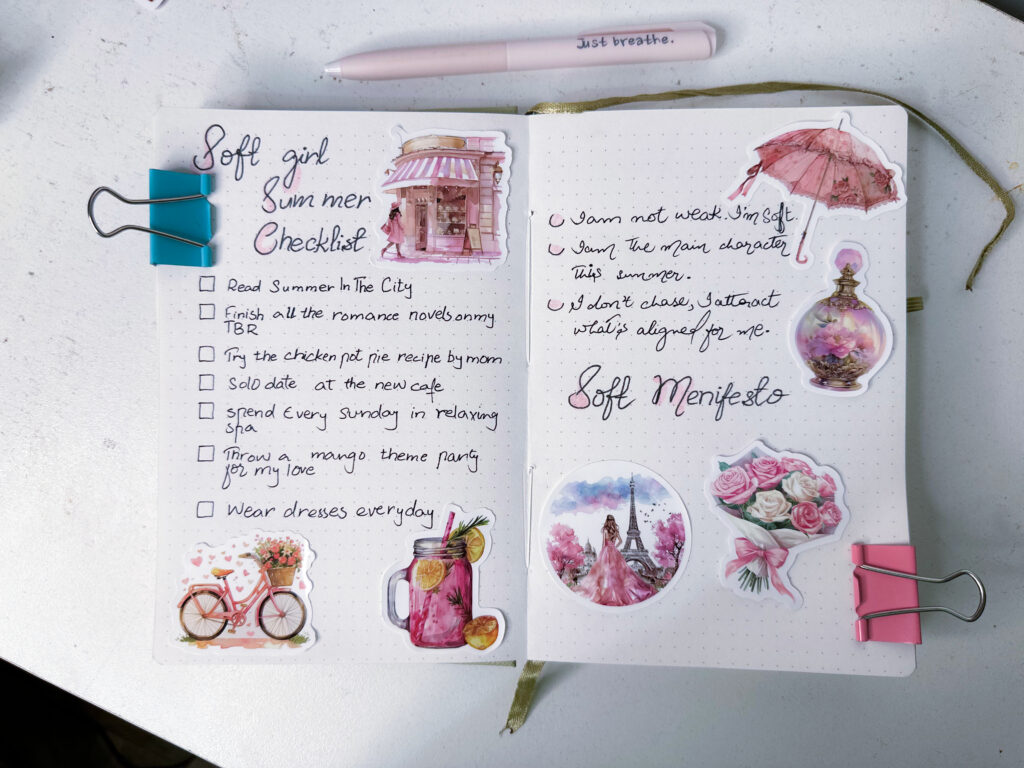 Just breathe.
Soft girl
Summer
Checklist
Read Summer In The City
Finish all the romance novels on my
TBR
Try the chicken pot pie recipe by mom
Solo date at the new cafe
spend Every Sunday in relaxing
spa
Throw a mango theme party
for my love
Wear dresses everyday
I am not weak. I'm Soft.
I am the main character
this summer.
I don't chase, I atteract
what's aligned for me.
Soft Menifesto